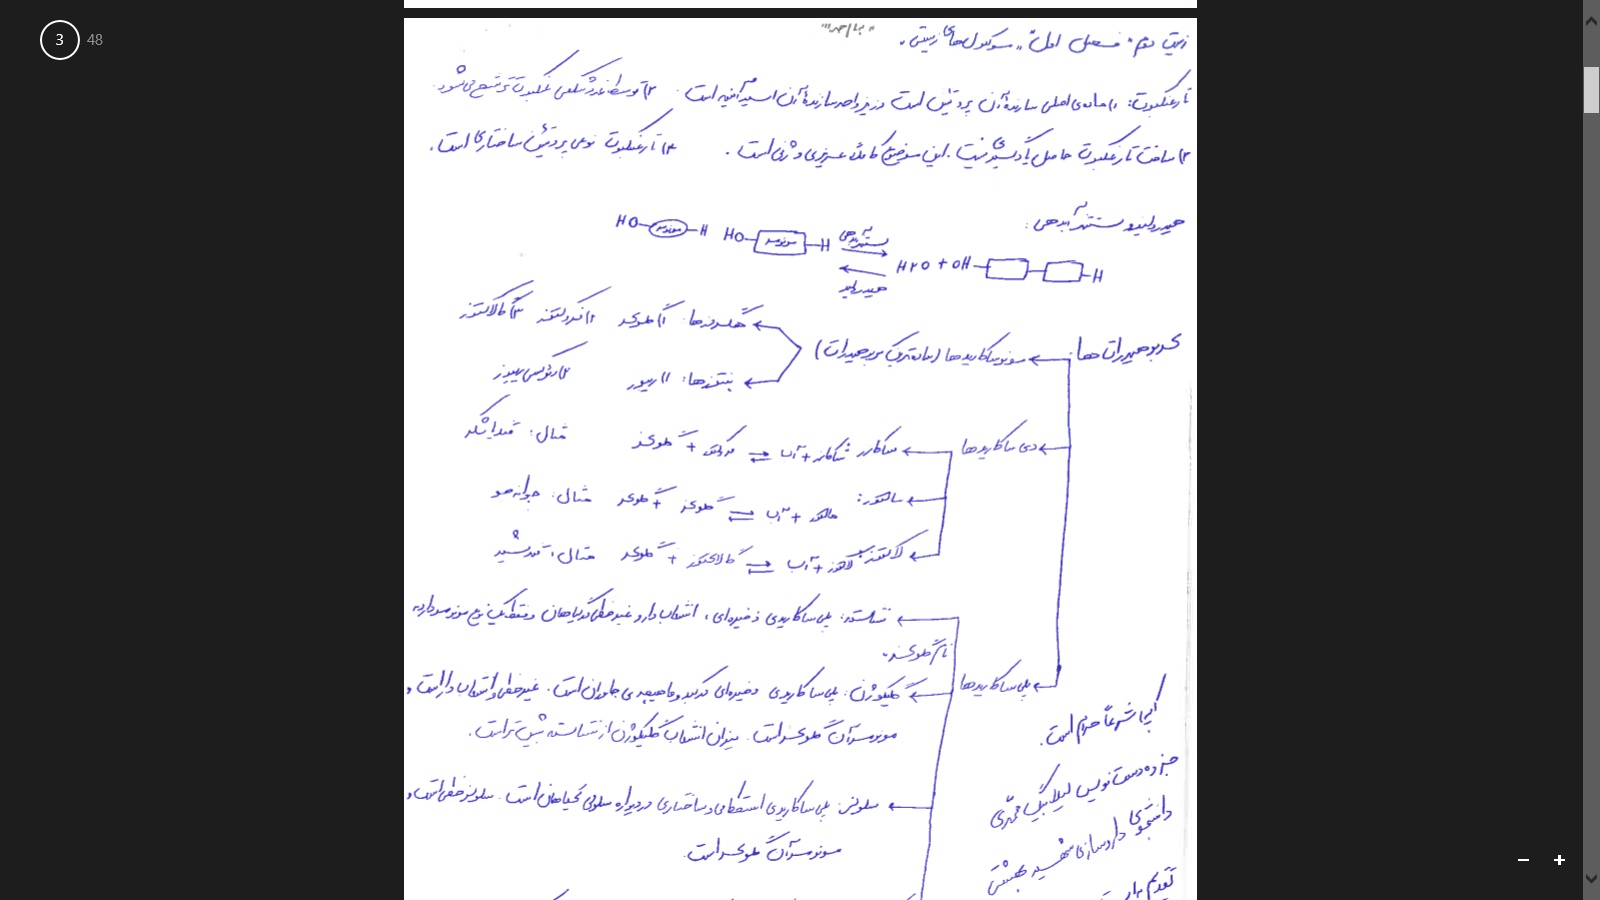 3
48
زیست دوم. فصل اول "مولکول‌های زیستی".
تار عنکبوت: ۱) ماده‌ی اصلی سازندهٔ آن پروتئین است و نیز واحد سازندهٔ آن اسید آمینه است ۲) توسط غدد شکمی عنکبوت ترشح می‌شود.
۳) ساخت تار عنکبوت حاصل یادگیری نیست. این موضوع کاملاً غریزی و ژنی است. ۴) تار عنکبوت نوعی پروتئین ساختاری است.
هیدرولیز و سنتز آبدهی:
HO مونومر H HO مونومر H سنتز آبدهی
هیدرولیز H۲O + OH H
کربوهیدرات ها
مونوساکاریدها
هگزوزها: ۱) گلوکز ۲) فروکتوز ۳) گالاکتوز
پنتوزها: ۱) ریبوز ۲) دئوکسی ریبوز
دی ساکاریدها
ساکارز: ساکارز + آب ⇌ فروکتوز + گلوکز مثال: قند و شکر
مالتوز: مالتوز + آب ⇌ گلوکز + گلوکز مثال: جوانه جو
لاکتوز: لاکتوز + آب ⇌ گالاکتوز + گلوکز مثال: قند شیر
پلی ساکاریدها
نشاسته: پلی ساکاریدی ذخیره‌ای، انشعاب دار و غیرخطی گیاهان و فقط یک نوع مونومر دارد به
نام گلوکز.
گلیکوژن: پلی ساکاریدی ذخیره‌ای کبد و ماهیچه‌ی جانوران است. غیرخطی و انشعاب دار است و
مونومر آن گلوکز است. میزان انشعاب گلیکوژن از نشاسته بیش تر است.
سلولز: پلی ساکاریدی استحکامی و ساختاری در دیواره سلولی گیاهان است. سلولز خطی است و
مونومر آن گلوکز است.
کپی شرعاً حرام است.
جزوه دستنویس لیلا بیگ محمدی
دانشجوی داروسازی شهید بهشتی
تقدیم به